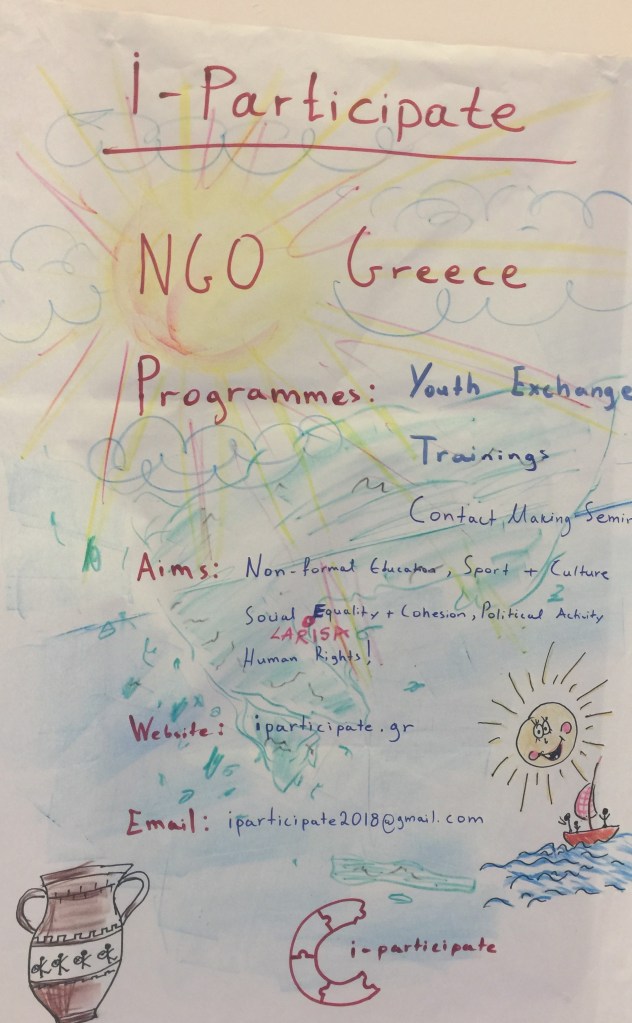 i-Participate
NGO Greece
Programmes: Youth Exchange
Trainings
Contact Making Semin
Aims: Non-formal Education, Sport + Culture
Social Equality + Cohesion, Political Activity
LARISA
Human Rights!
Website: iparticipate.gr
Email: iparticipate2018@gmail.com
i-participate